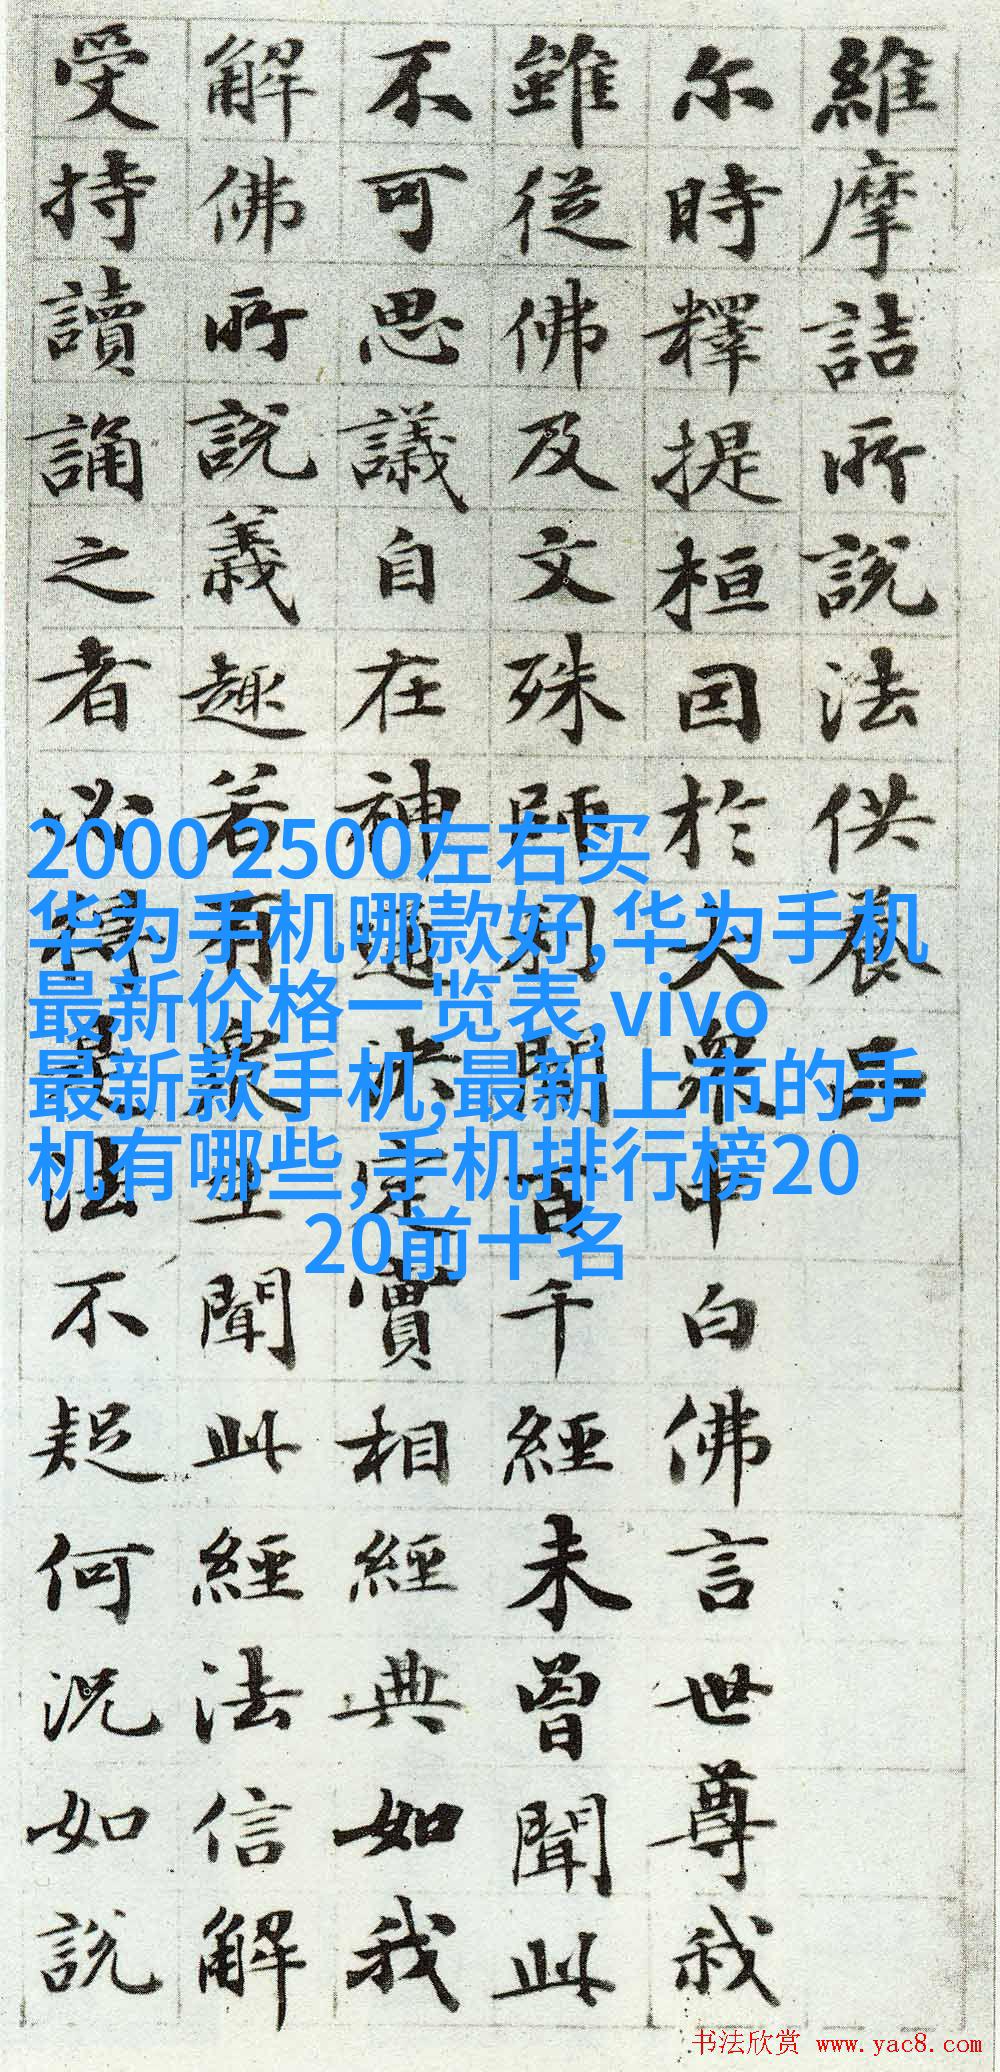 維摩詰所說法供養品
尔時釋提桓因於大衆中白佛言世尊我
雖從佛及文殊師利聞百千經未曾聞此
不可思議自在神通決定實相經典如我
解佛所說義趣若有衆生聞此經法信解
受持讀誦之者必得是法不疑何況如說
2000 2500左右买
华为手机哪款好,华为手机
最新价格一览表,vivo
最新款手机,最新上市的手
机有哪些,手机排行榜20
20前十名
书法欣赏 www.yac8.com